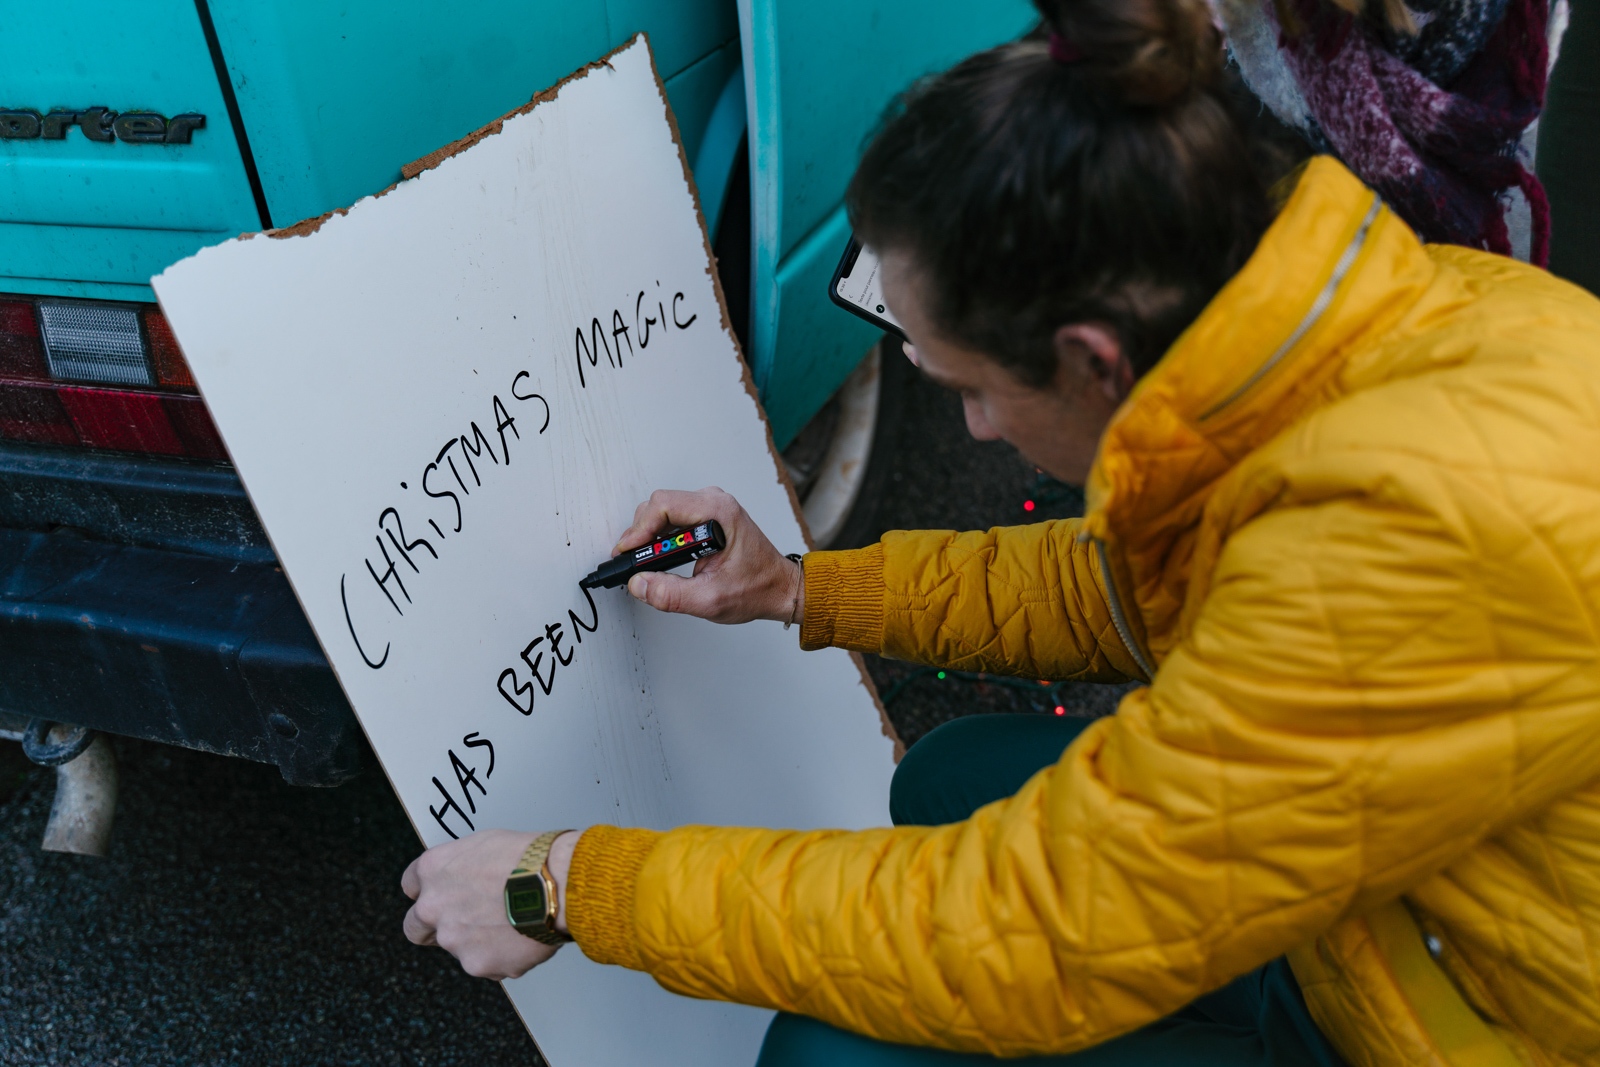 orter
CHRiSTMAS MAGiC
HAS BEEN
uni POSCA